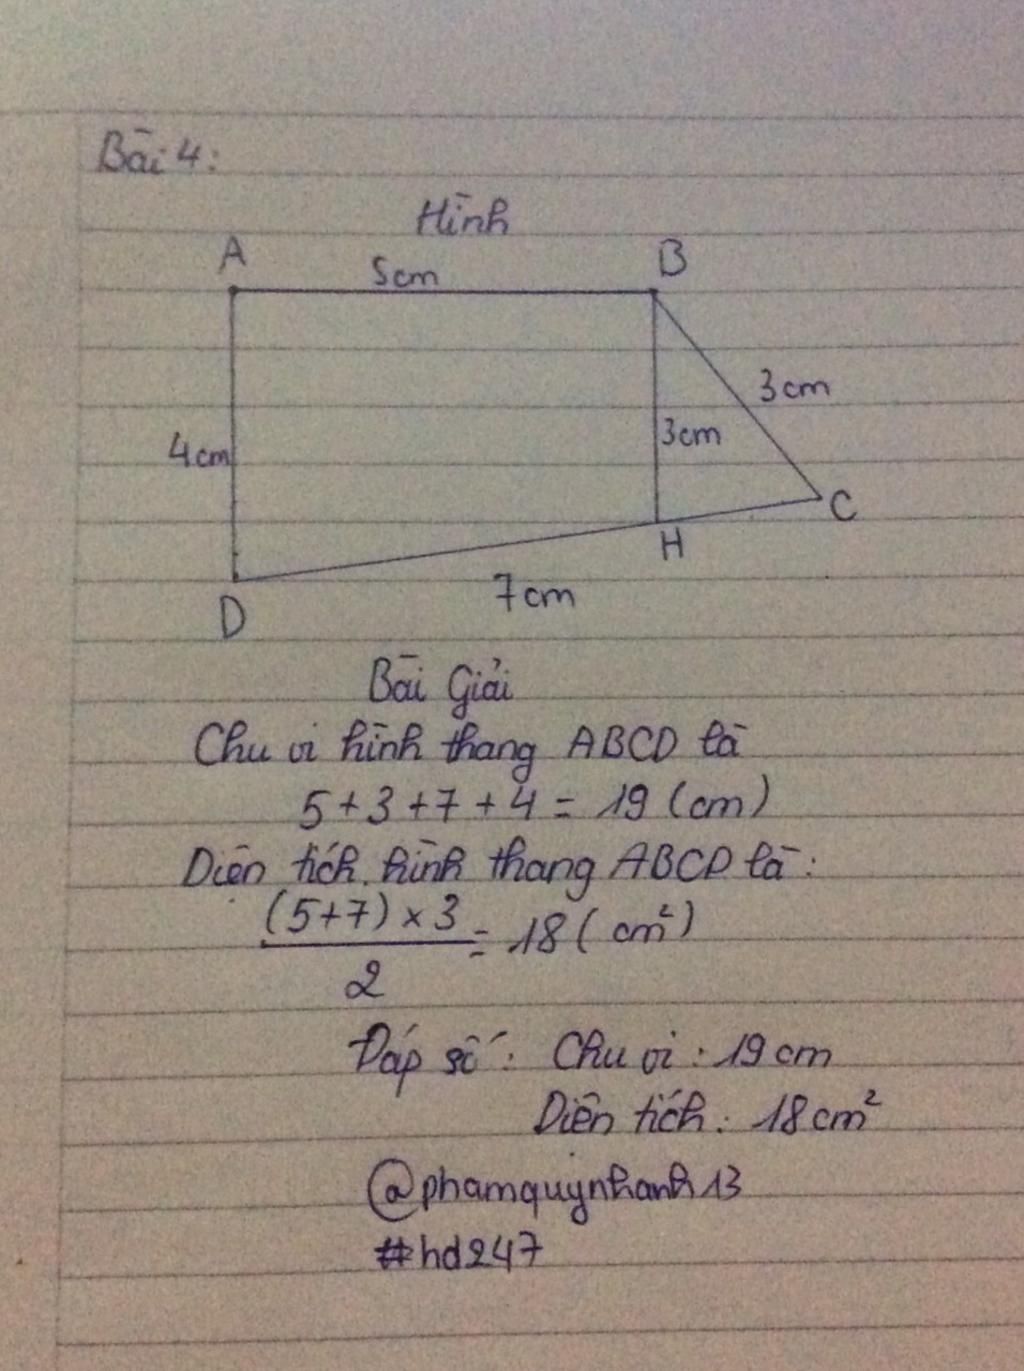 Bài 4:
Hình
A
5cm
B
3cm
4cm
3cm
C
H
7cm
D
Bài Giải
Chu vi hình thang ABCD là
5 + 3 + 7 + 4 = 19 (cm)
Diện tích hình thang ABCD là:
(5+7) × 3
= 18 (cm²)
2
Đáp số: Chu vi: 19 cm
Diện tích: 18 cm²
@phamquynhanh13
#hd247